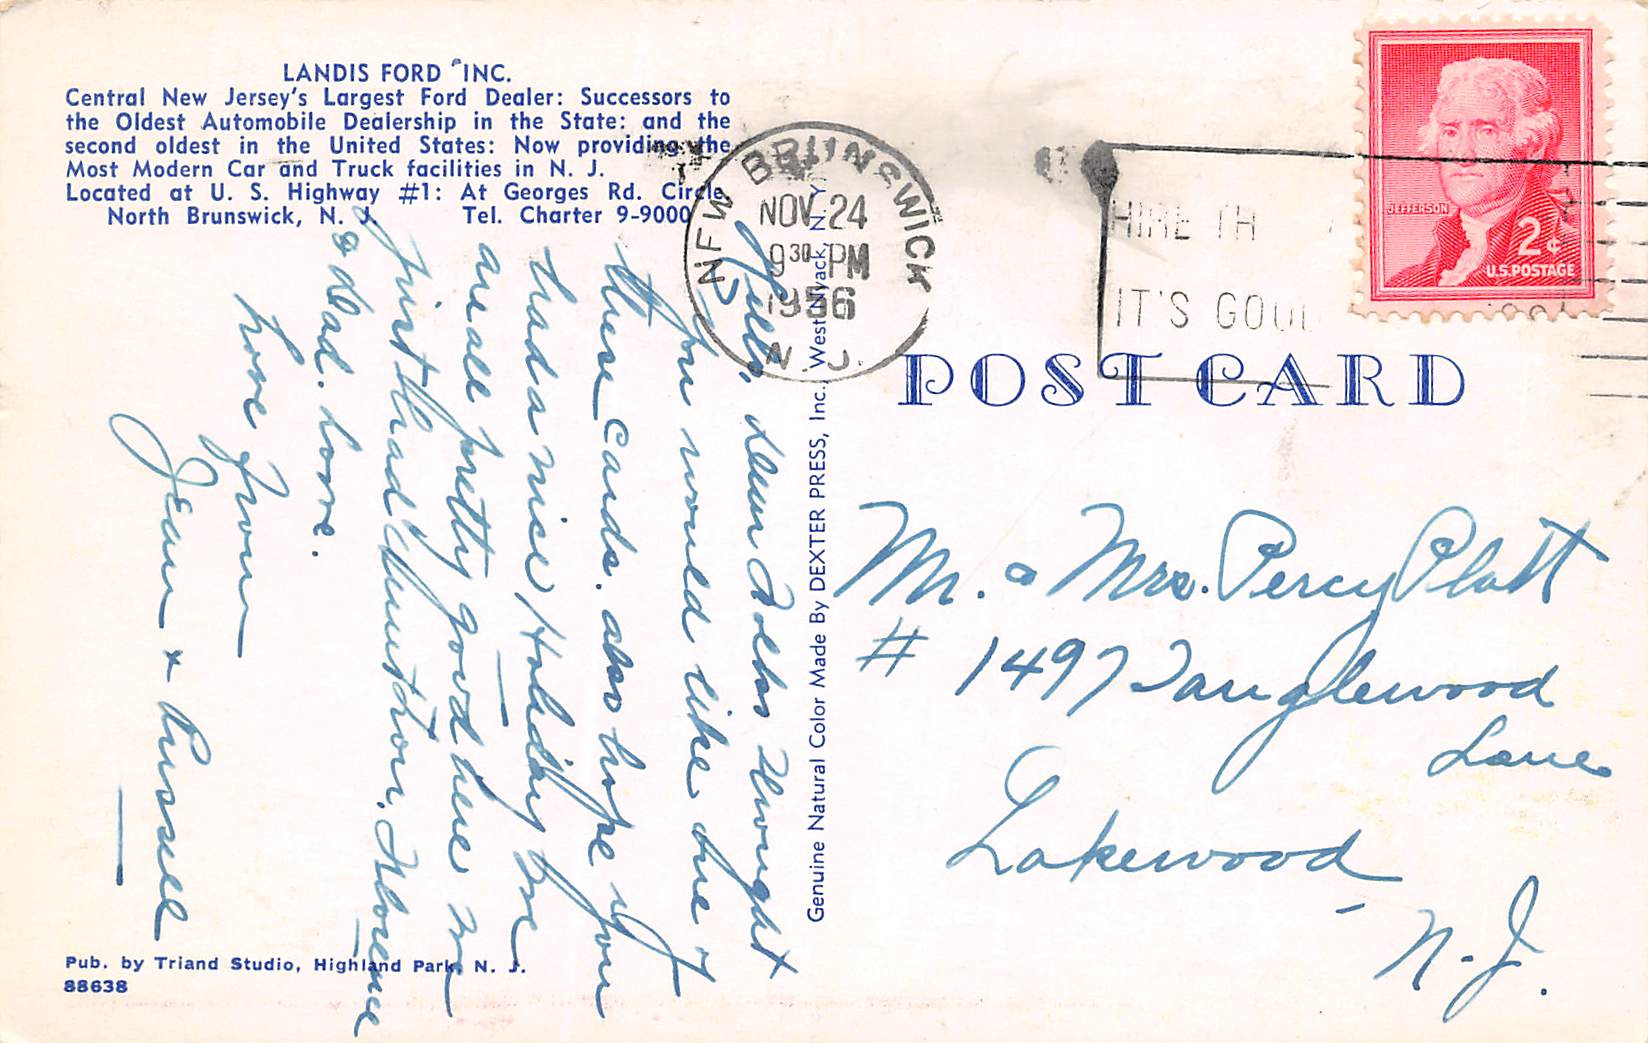 LANDIS FORD INC.
Central New Jersey's Largest Ford Dealer: Successors to
the Oldest Automobile Dealership in the State: and the
second oldest in the United States: Now providing the
Most Modern Car and Truck facilities in N. J.
Located at U. S. Highway #1: At Georges Rd. Circle
North Brunswick, N. J. Tel. Charter 9-9000
Hello, dear Folks thought
you would like one of
these cards. also hope you
had a nice Holiday we
are all pretty good here we
just had Thurs. Florence
& Dad. love.
Love from
Jean + Russell
Pub. by Triand Studio, Highland Park, N. J.
88638
Genuine Natural Color Made By DEXTER PRESS, Inc., West Nyack, N. Y.
NEW BRUNSWICK
NOV 24
9 30 PM
1956
N. J.
HIRE TH
IT'S GOOD
JEFFERSON
2¢
U.S. POSTAGE
POST CARD
Mr. & Mrs. Percy Platt
# 1497 Tanglewood
Lane
Lakewood
N. J.